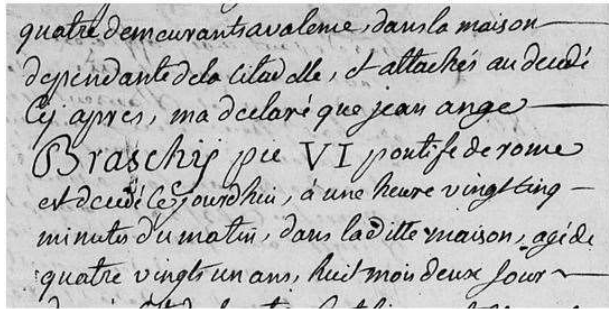 quatre demeurants a valence, dans la maison
dependante de la citadelle, et attachés au decedé
Cy apres, m'a declaré que jean ange
Braschij pie VI pontife de rome
est decedé Cejourdhui, à une heure vingt cinq
minutes du matin, dans la ditte maison, agé de
quatre vingt un ans, huit mois deux jour